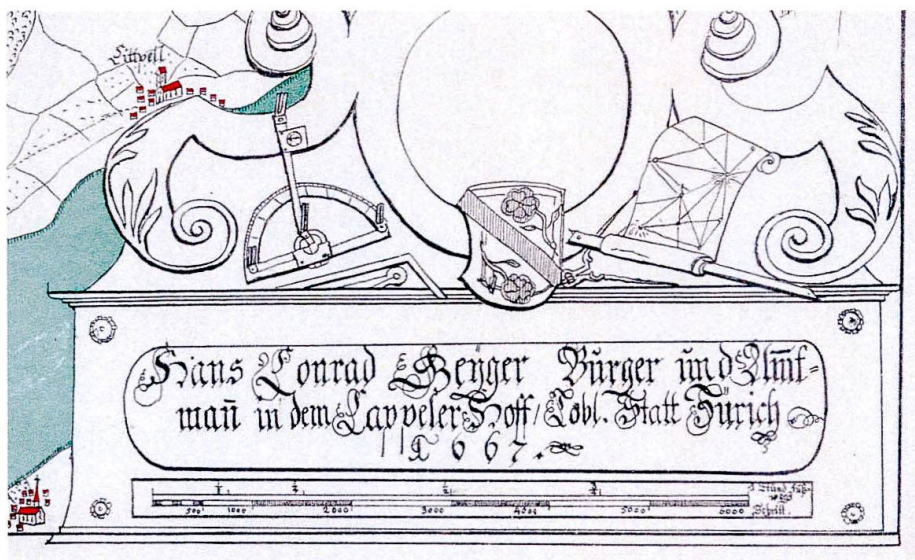 Hans Conrad Geÿger Bŭrger ŭnd Am̄t=
man̄ in dem Cappeler Hoff / Lobl. Statt Zürich
1667.
¼ ½ ¾
500 1000 2000 3000 4000 5000 6000 Schritt.